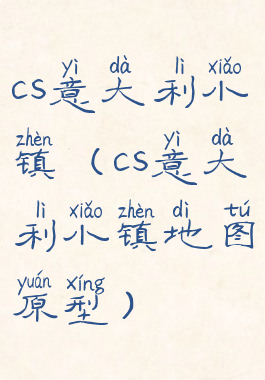 yì dà lì xiǎo
CS意大利小
zhèn yì dà
镇（CS意大
lì xiǎo zhèn dì tú
利小镇地图
yuán xíng
原型）